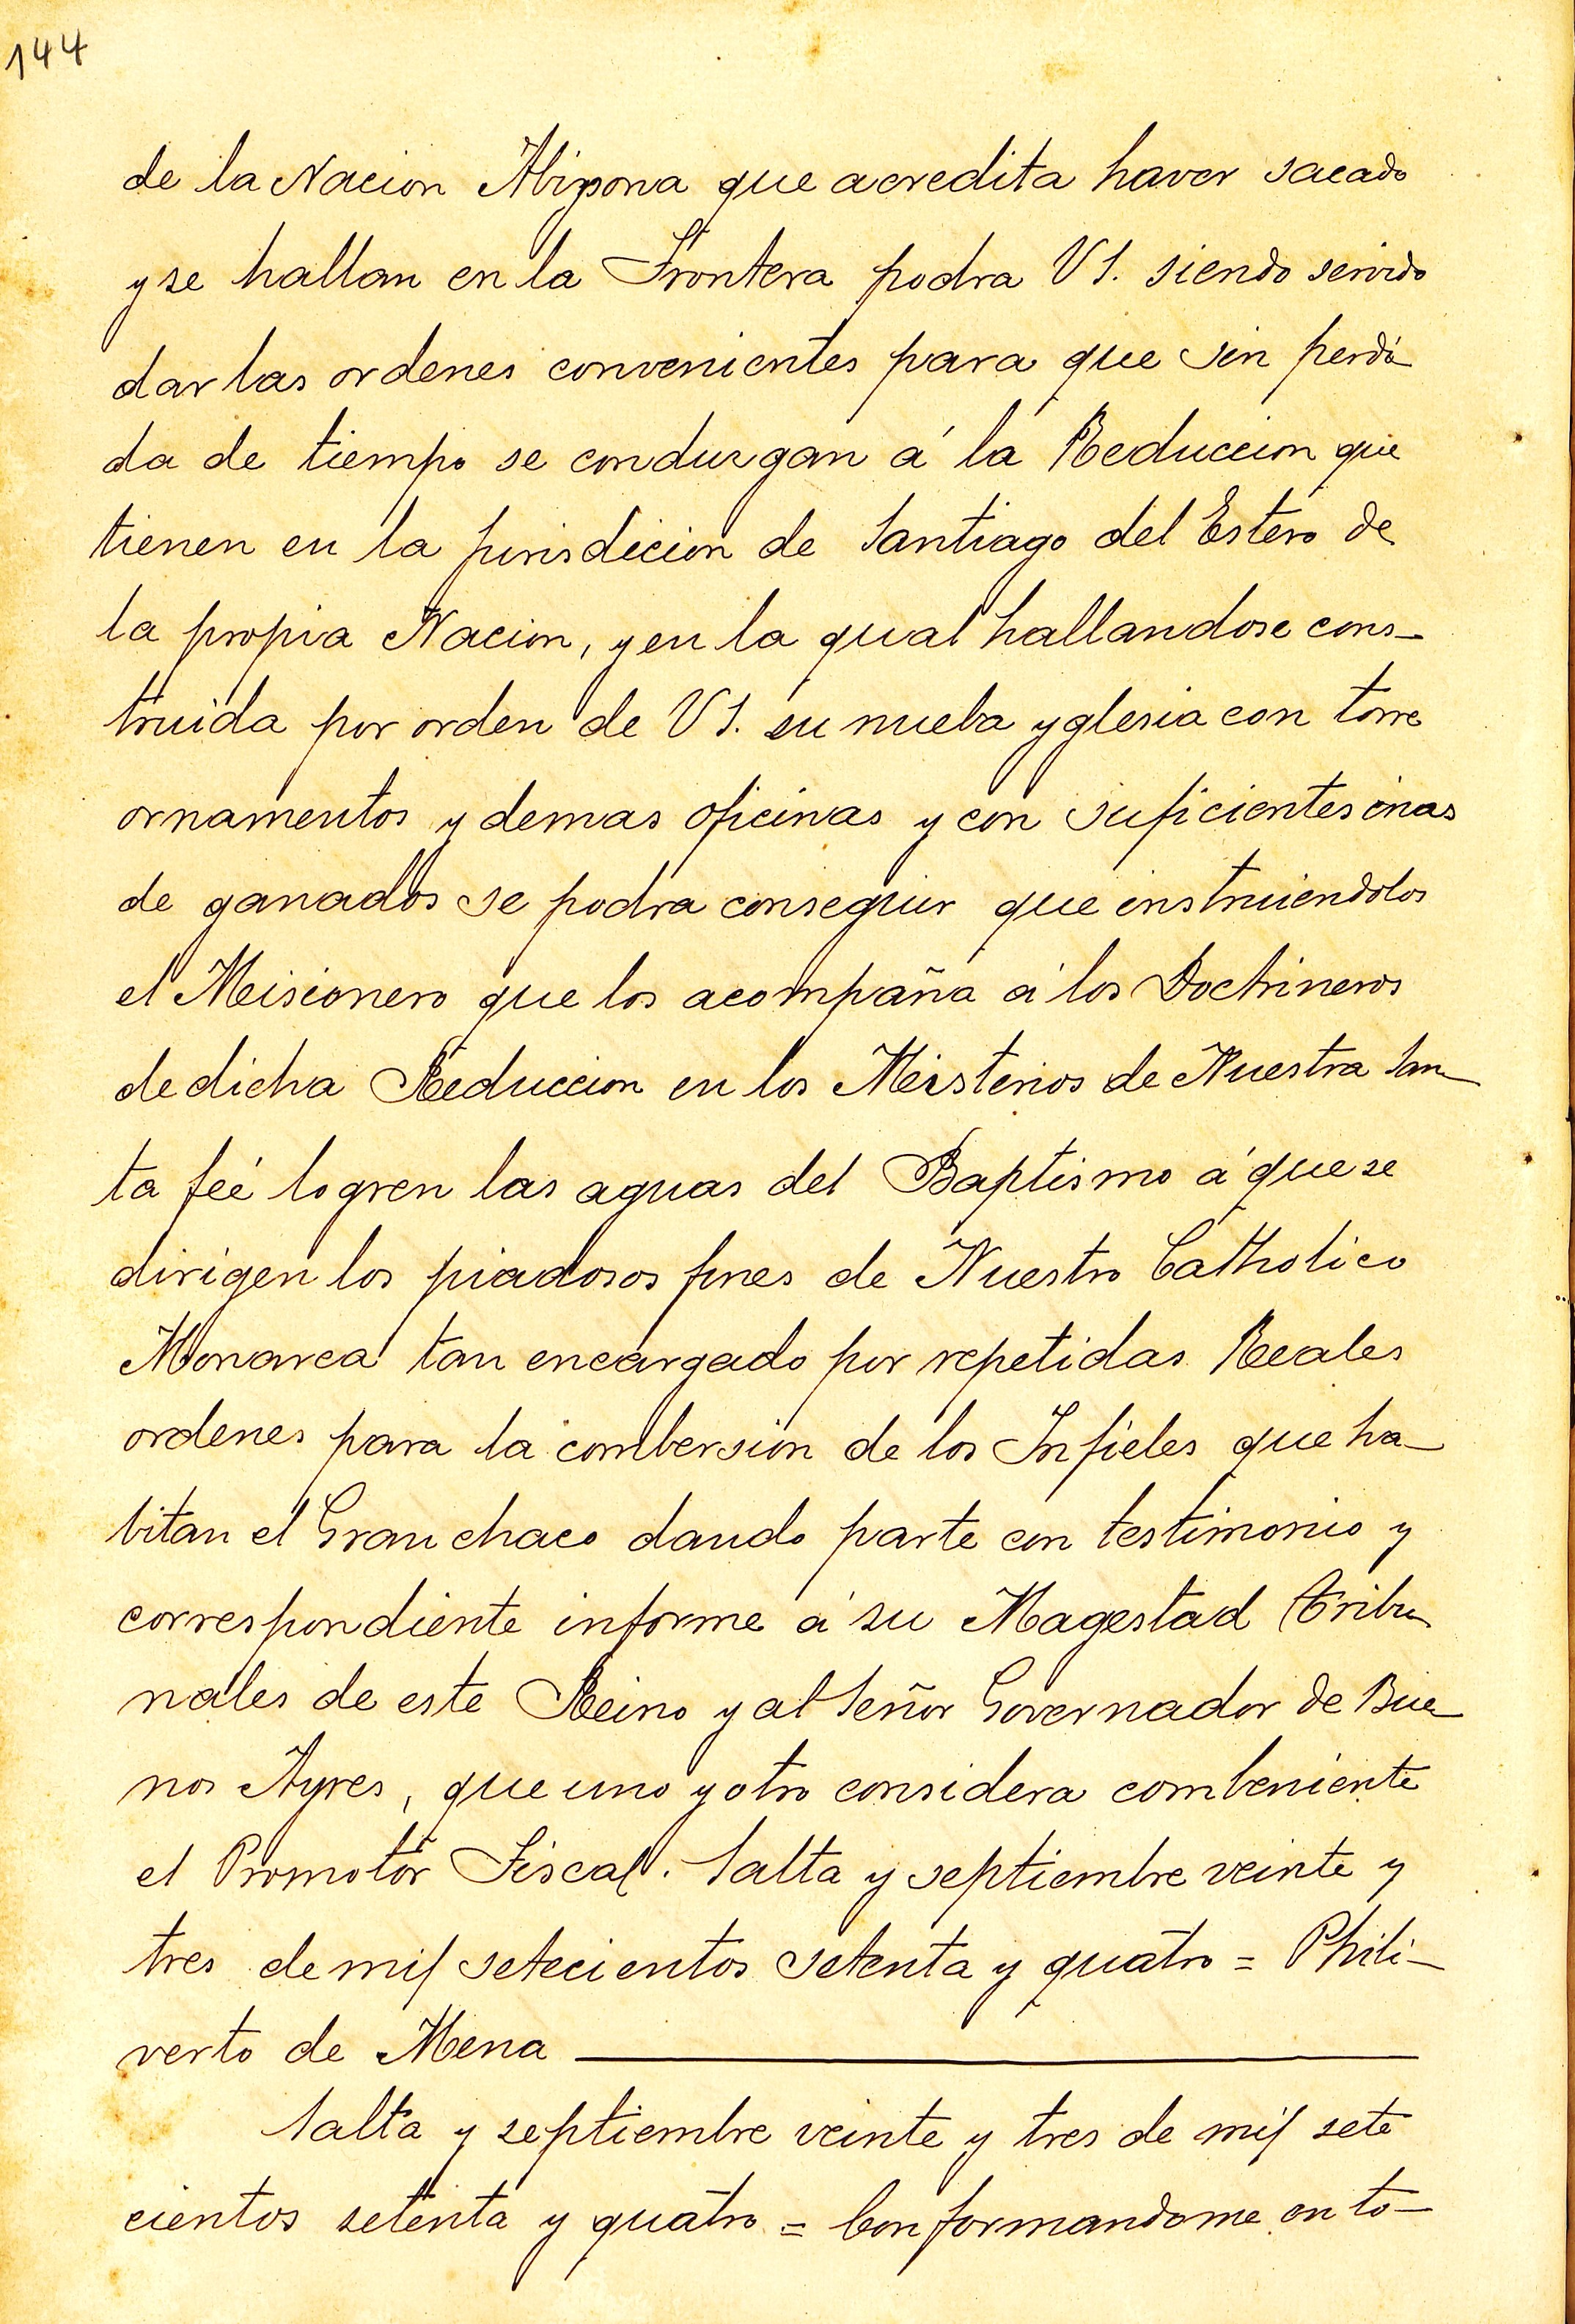 144
de la Nacion Abipona que acredita haver sacado
y se hallan en la Frontera podra V S. siendo servido
dar las ordenes convenientes para que sin perdi-
da de tiempo se conduzgan á la Reduccion que
tienen en la jurisdicion de Santiago del Estero de
la propia Nacion, y en la qual hallandose cons-
truida por orden de V S. su nueba yglesia con torre
ornamentos y demas oficinas y con suficientes crias
de ganados se podra conseguir que instruiendolos
el Misionero que los acompaña á los Doctrineros
de dicha Reduccion en los Misterios de Nuestra San-
ta feé logren las aguas del Baptismo á que se
dirigen los piadosos fines de Nuestro Catholico
Monarca tan encargado por repetidas Reales
ordenes para la combersion de los Infieles que ha-
bitan el Gran chaco dando parte con testimonio y
correspondiente informe á su Magestad Tribu-
nales de este Reino y al Señor Governador de Bue-
nos Ayres, que uno y otro considera combeniente
el Promotor Fiscal. Salta y septiembre veinte y
tres de mil setecientos setenta y quatro = Phili-
verto de Mena
Salta y septiembre veinte y tres de mil sete
cientos setenta y quatro = Conformandome en to-